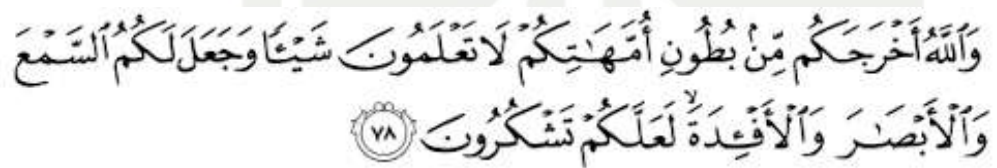 وَٱللَّهُ أَخْرَجَكُم مِّنۢ بُطُونِ أُمَّهَـٰتِكُمْ لَا تَعْلَمُونَ شَيْـًٔا وَجَعَلَ لَكُمُ ٱلسَّمْعَ
وَٱلْأَبْصَـٰرَ وَٱلْأَفْـِٔدَةَ ۙ لَعَلَّكُمْ تَشْكُرُونَ ﴿٧٨﴾